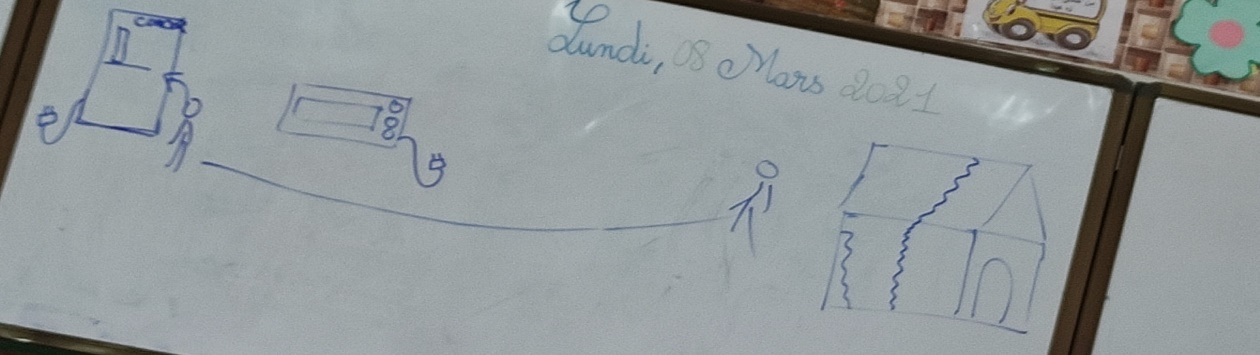 Lundi, 08 Mars 2021